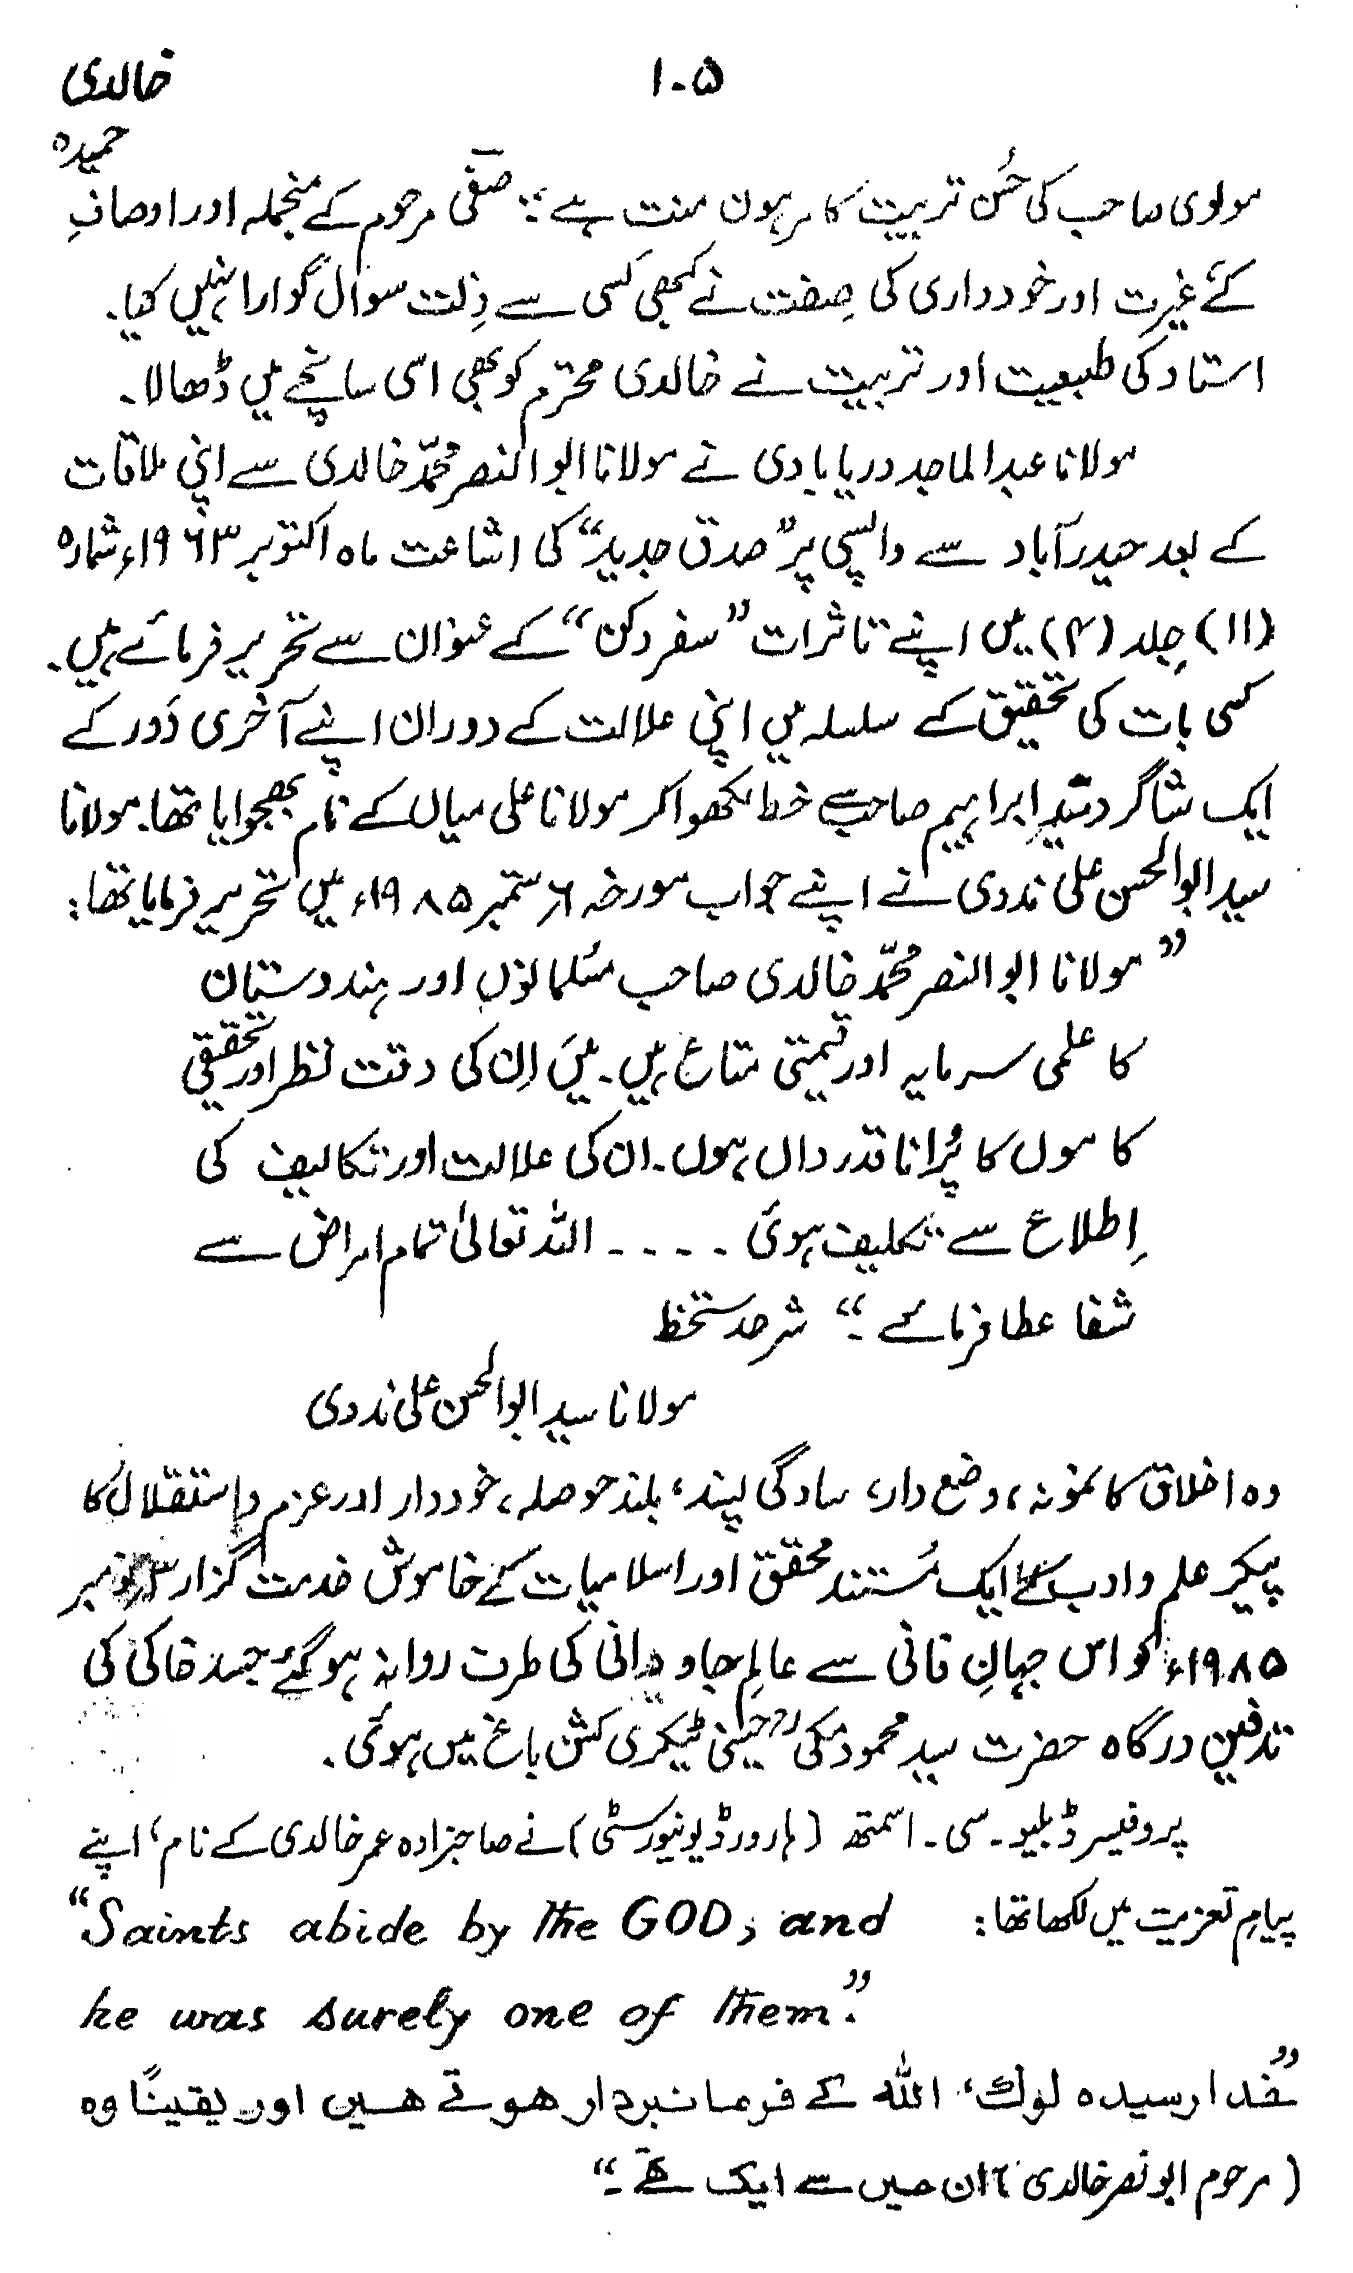 ۱۰۵ خالدی
مولوی صاحب کی حُسن تربیت کا مرہون منت ہے"۔ صفی مرحوم کے منجملہ اور اوصافِ حمیدہ
کے غیرت اور خودداری کی صِفت نے کبھی کسی سے ذِلت سوال گوارا نہیں کیا۔
استاد کی طبیعت اور تربیت نے خالدی محترم کو بھی اسی سانچے میں ڈھالا۔
مولانا عبدالماجد دریابادی نے مولانا ابوالنصر محمّد خالدی سے اپنی ملاقات
کے بعد حیدرآباد سے واپسی پر "صدق جدید" کی اشاعت ماہ اکتوبر ۱۹۶۳ء شمارہ
(۱۱) جِلد (۴) میں اپنے تاثرات "سفر دکن" کے عنوان سے تحریر فرمائے ہیں۔
کسی بات کی تحقیق کے سلسلہ میں اپنی علالت کے دوران اپنے آخری دَور کے
ایک شاگرد سید ابراہیم صاحب سے خط لکھوا کر مولانا علی میاں کے نام بھجوایا تھا۔ مولانا
سید ابوالحسن علی ندوی نے اپنے جواب مورخہ ۶ ستمبر ۱۹۸۵ء میں تحریر فرمایا تھا:
"مولانا ابوالنصر محمّد خالدی صاحب مسُلمانوں اور ہندوستان
کا علمی سرمایہ اور قیمتی متاع ہیں۔ میَں اِن کی دقت نظر اور تحقیقی
کاموں کا پُرانا قدرداں ہوں۔ ان کی علالت اور تکالیف کی
اِطلاع سے تکلیف ہوئی ۔۔۔۔ اللہ تعالیٰ تمام امراض سے
شفا عطا فرمائے۔" شرحدستخط
مولانا سید ابوالحسن علی ندوی
وہ اخلاق کا نمونہ، وضع دار، سادگی پسند، بلند حوصلہ، خوددار اور عزم و اِستقلال کا
پیکر علم و ادب کے ایک مُستند محقق اور اسلامیات کے خاموش خدمت گزار نومبر
۱۹۸۵ء کو اس جہانِ فانی سے عالمِ جاودانی کی طرف روانہ ہوگئے جسد خاکی کی
تدفین درگاہ حضرت سید محمود مکیؒ حسینی ٹیکری کشن باغ میں ہوئی۔
پروفیسر ڈبلیو۔ سی۔ اسمتھ (ہارورڈ یونیورسٹی) نے صاحبزادہ عمر خالدی کے نام، اپنے
پیامِ تعزیت میں لکھا تھا: "Saints abide by the GOD, and
he was surely one of them."
"خُدا رسیدہ لوگ، اللہ کے فرمانبردار ھوتے ھیں اور یقیناً وہ
(مرحوم ابونصر خالدی) ان میں سے ایک تھے۔"